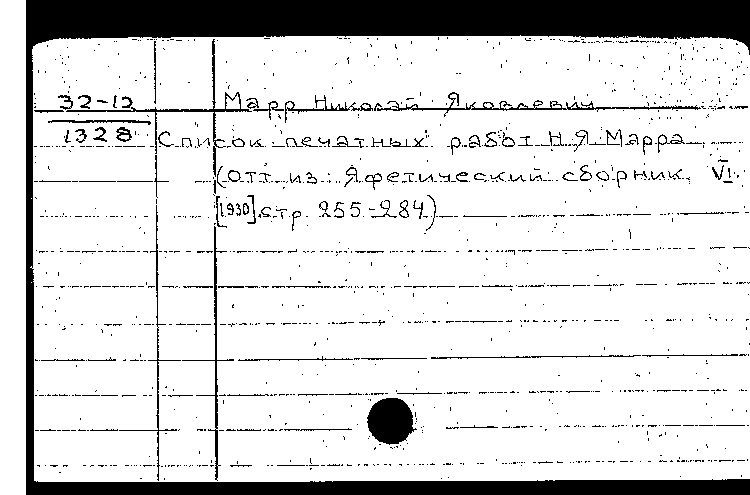 32-12 Марр Николай Яковлевич
1328 Список печатных работ Н.Я. Марра
(отт. из: Яфетический сборник, VI.
[1930], стр. 255-284)